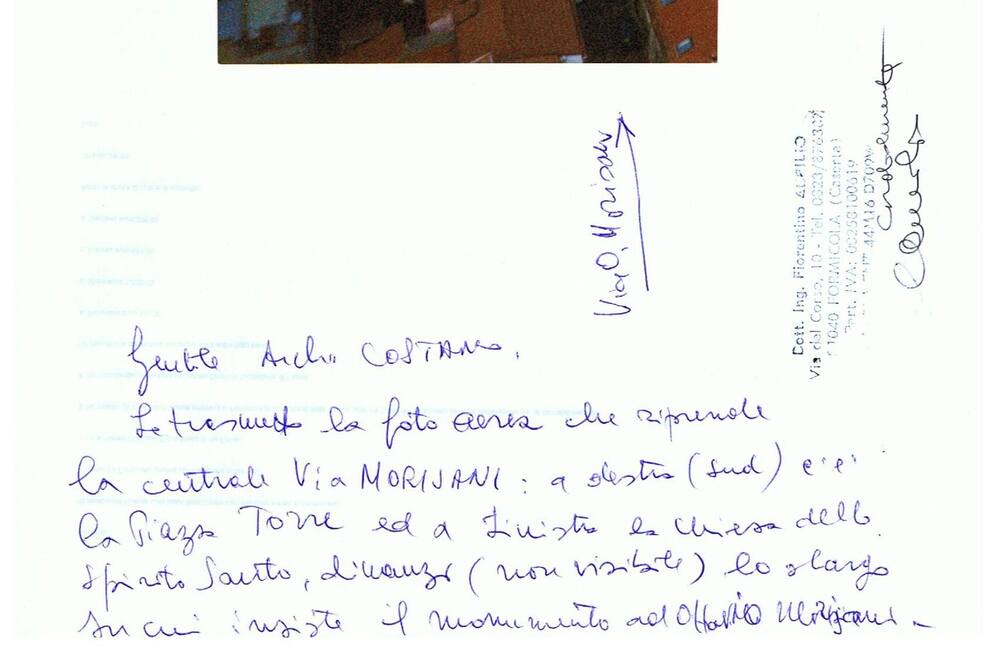 Via O. Morisani
Dott. Ing. Fiorentino ALFILIO
Via del Corso, 10 - Tel. 0823/876307
81040 FORMICOLA (Caserta)
Part. IVA: 00258100619
44M16 D709
Cordialmente
Gentile Arch. COSTANZO,
Le trasmetto la foto aerea che riprende
la centrale Via MORISANI: a destra (sud) c'è
la Piazza Torre ed a sinistra la chiesa dello
Spirito Santo, dinanzi (non visibile) lo slargo
su cui insiste il monumento ad Ottavio Morisani -